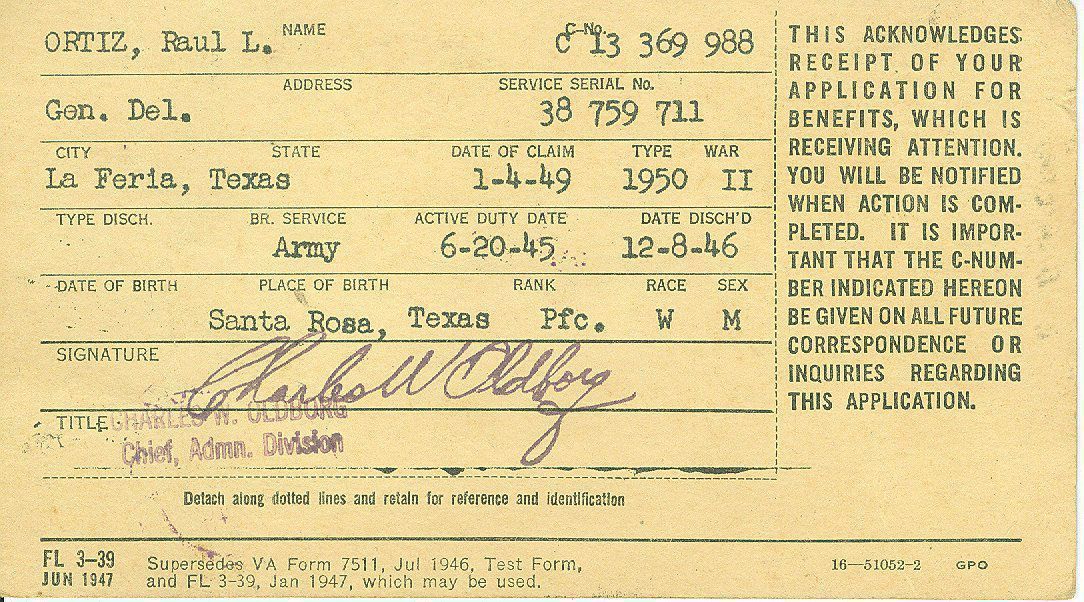 NAME C-No.
ORTIZ, Raul L. C 13 369 988
ADDRESS SERVICE SERIAL No.
Gen. Del. 38 759 711
CITY STATE DATE OF CLAIM TYPE WAR
La Feria, Texas 1-4-49 1950 II
TYPE DISCH. BR. SERVICE ACTIVE DUTY DATE DATE DISCH'D
Army 6-20-45 12-8-46
DATE OF BIRTH PLACE OF BIRTH RANK RACE SEX
Santa Rosa, Texas Pfc. W M
SIGNATURE
Charles W Oldborg
TITLE CHARLES W. OLDBORG
Chief, Admn. Division
THIS ACKNOWLEDGES
RECEIPT OF YOUR
APPLICATION FOR
BENEFITS, WHICH IS
RECEIVING ATTENTION.
YOU WILL BE NOTIFIED
WHEN ACTION IS COM-
PLETED. IT IS IMPOR-
TANT THAT THE C-NUM-
BER INDICATED HEREON
BE GIVEN ON ALL FUTURE
CORRESPONDENCE OR
INQUIRIES REGARDING
THIS APPLICATION.
Detach along dotted lines and retain for reference and identification
FL 3-39
JUN 1947
Supersedes VA Form 7511, Jul 1946, Test Form,
and FL 3-39, Jan 1947, which may be used.
16—51052-2 GPO